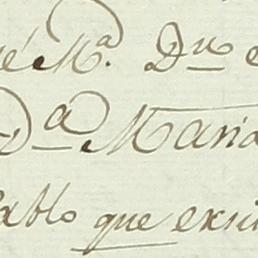 é M.ª Dn
D.ª María
Pablo que exis